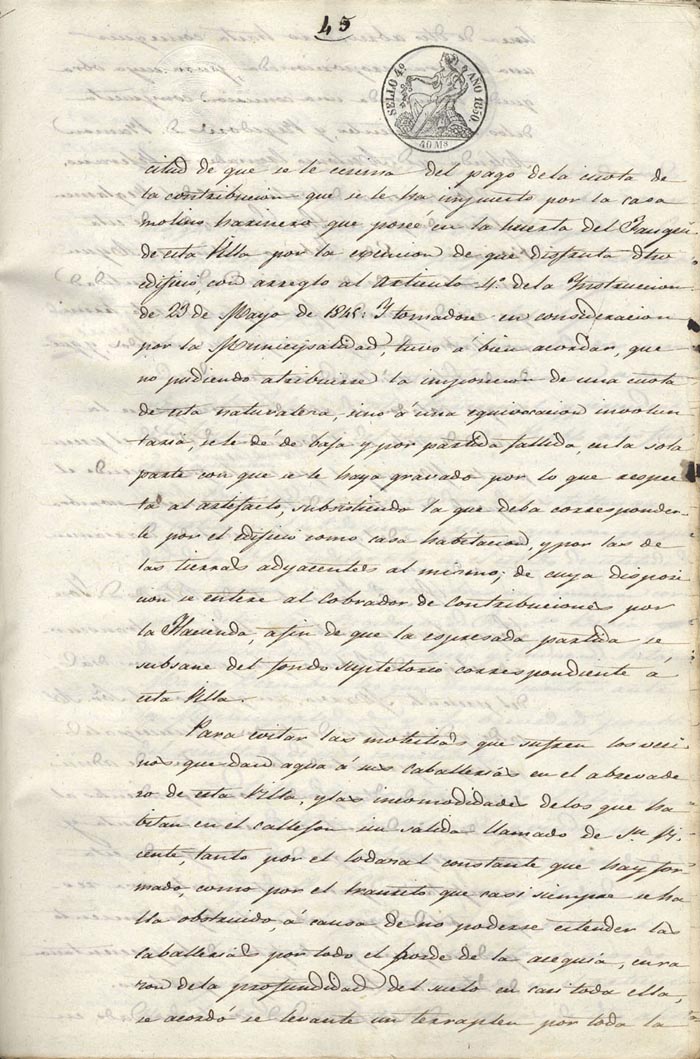 45
SELLO 4º AÑO 1850.
40 Ms
citud de que se le exsima del pago dela cuota de
la contribucion que se le ha impuesto por la casa
molino harinero que posee en la huerta del
de esta Villa por la esencion de que disfruta dho
edificio con arreglo al articulo 4º dela Instruccion
de 23 de Mayo de 1845: Y tomadose en consideracion
por la Municipalidad, tuvo á bien acordar, que
no pudiendo atribuirse la imposicion de una cuota
de esta naturaleza, sino á una equivocacion involun
taria, se le dé de baja y por partida fallida, en la sola
parte con que se le haya gravado por lo que respec
ta al artefacto, subsistiendo la que deba corresponder
le por el edificio como casa habitacion, y por las de
las tierras adyacentes al mismo; de cuya disposi
cion se entere al Cobrador de Contribuciones por
la Hacienda, afin de que la espresada partida se
subsane del fondo supletorio correspondiente á
esta Villa.
Para evitar las molestias que sufren los veci
nos que dan agua á sus caballerias en el abrevade
ro de esta Villa, y las incomodidades delos que ha
bitan en el callejon sin salida llamado de Sn. Vi-
cente, tanto por el lodazal constante que hay for
mado, como por el transito que casi siempre se ha
lla obstruido, á causa de no poderse estender las
caballerias por todo el borde de la acequia, en ra
zon dela profundidad del suelo en casi toda ella,
se acordó se levante un terraplen por toda la